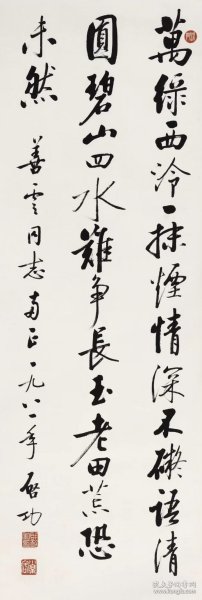 萬綠西泠一抹煙情深不礙語清
圓碧山四水難爭長玉老田荒恐
未然
善雲同志兩正一九八一年 啓功